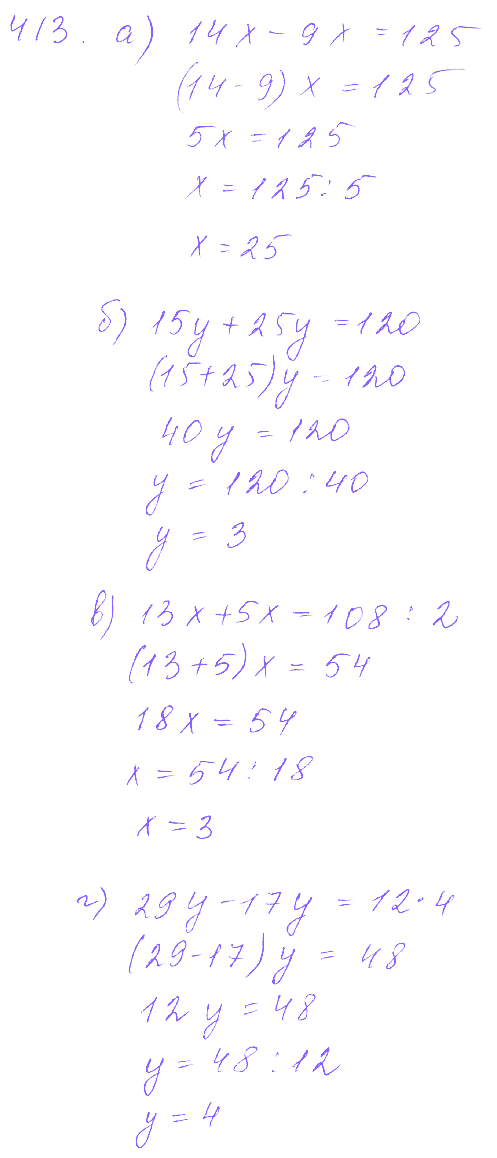 413. а) 14x - 9x = 125
(14 - 9) x = 125
5x = 125
x = 125 : 5
x = 25
б) 15y + 25y = 120
(15 + 25) y = 120
40 y = 120
y = 120 : 40
y = 3
в) 13x + 5x = 108 : 2
(13 + 5) x = 54
18x = 54
x = 54 : 18
x = 3
г) 29y - 17y = 12 · 4
(29 - 17) y = 48
12 y = 48
y = 48 : 12
y = 4